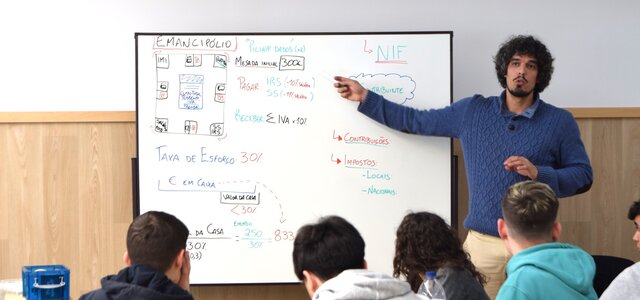 EMANCIPÓLIO
IMI
"PILHAR DADOS" (x2)
MESADA INICIAL 300€
PAGAR IRS (-10% SALÁRIO)
SS (-11% SALÁRIO)
RECEBER Σ IVA x 10%
TAXA DE ESFORÇO 30%
€ EM CAIXA
VALOR DA CASA
< 30%
DA CASA
30%
0,3)
= 250 = 833
30%
NIF
CONTRIBUINTE
CONTRIBUIÇÕES:
IMPOSTOS:
- LOCAIS:
- NACIONAIS: